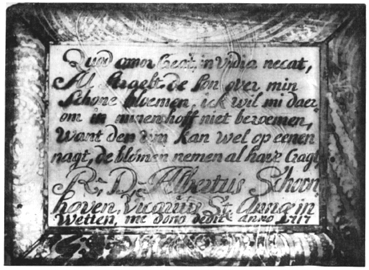 Quod amor beat, invidia necat,
Al over min
Schone bloemen, ick wil mi daer
om in minen hoff niet beroemen,
Want den rim kan wel op eenen
nagt, de bloimen nemen al haer cragt
R. D. Albertus Schoon
hoven, Vicarius St Annæ in
Wetten, me dono dedit anno 1717